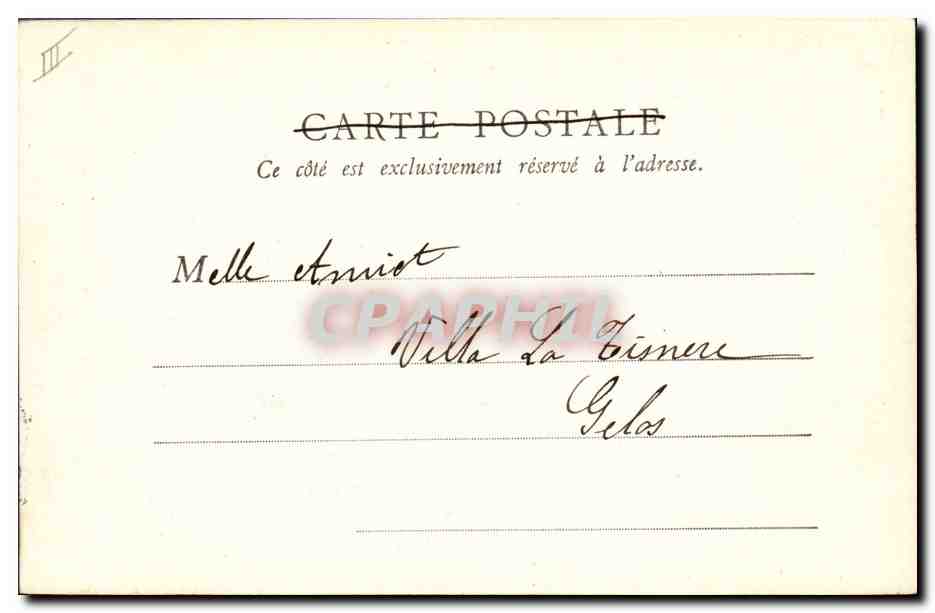 III
CARTE POSTALE
Ce côté est exclusivement réservé à l'adresse.
Melle Amiot
CPAPHIL
Villa La Tisnere
Gelos